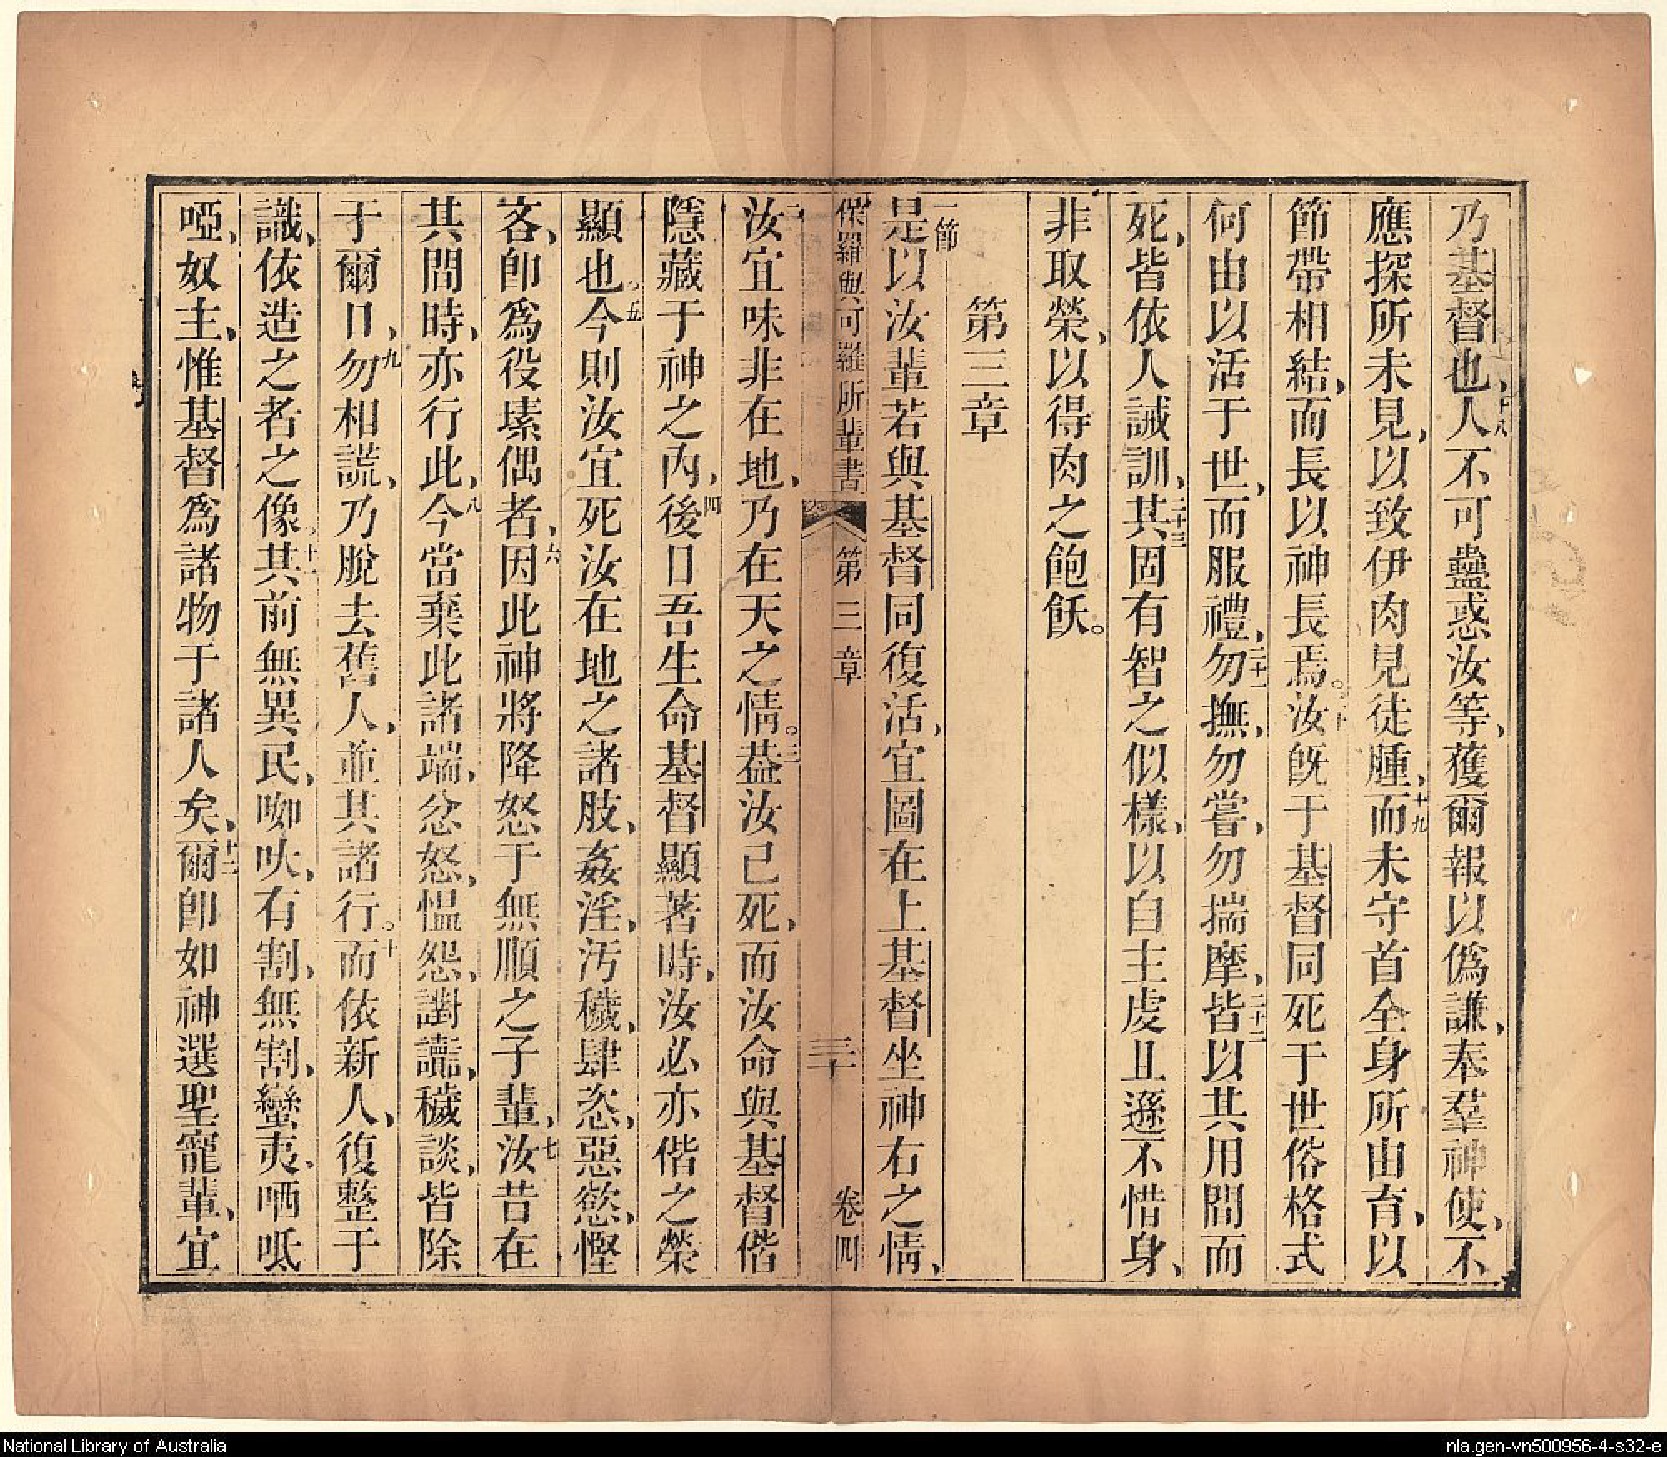 乃基督也、十八人不可蠱惑汝等、獲爾報以僞謙、奉羣神使、不
應探所未見、以致伊肉見徒腫、十九而未守首全身所由育、以
節帶相結、而長以神長焉。二十汝旣于基督同死于世俗格式
何由以活于世、而服禮、二十一勿撫、勿嘗、勿揣摩、二十二皆以其用間而
死、皆依人誡訓、二十三其固有智之似樣、以自主虔且遜不惜身、
非取榮、以得肉之飽飫。
第三章
一節是以汝輩若與基督同復活、宜圖在上基督坐神右之情、
保羅與可羅所輩書 第三章 三十 卷四
二汝宜味非在地、乃在天之情。三葢汝已死、而汝命與基督偕
隱藏于神之內、四後日吾生命基督顯著時、汝必亦偕之榮
顯也、五今則汝宜死汝在地之諸肢、姦淫、汚穢、肆恣、惡慾、慳
吝、卽爲役塐偶者、六因此神將降怒于無順之子輩、七汝昔在
其間時、亦行此、八今當棄此諸端、忿怒、慍怨、讟、穢談、皆除
于爾口、九勿相謊、乃脫去舊人、並其諸行。十而依新人、復整于
識、依造之者之像、十一其前無異民、㖿㕤、有割、無割、蠻夷、哂呧
啞、奴主、惟基督爲諸物于諸人矣、十二爾卽如神選聖寵輩、宜
National Library of Australia
nla.gen-vn500956-4-s32-e